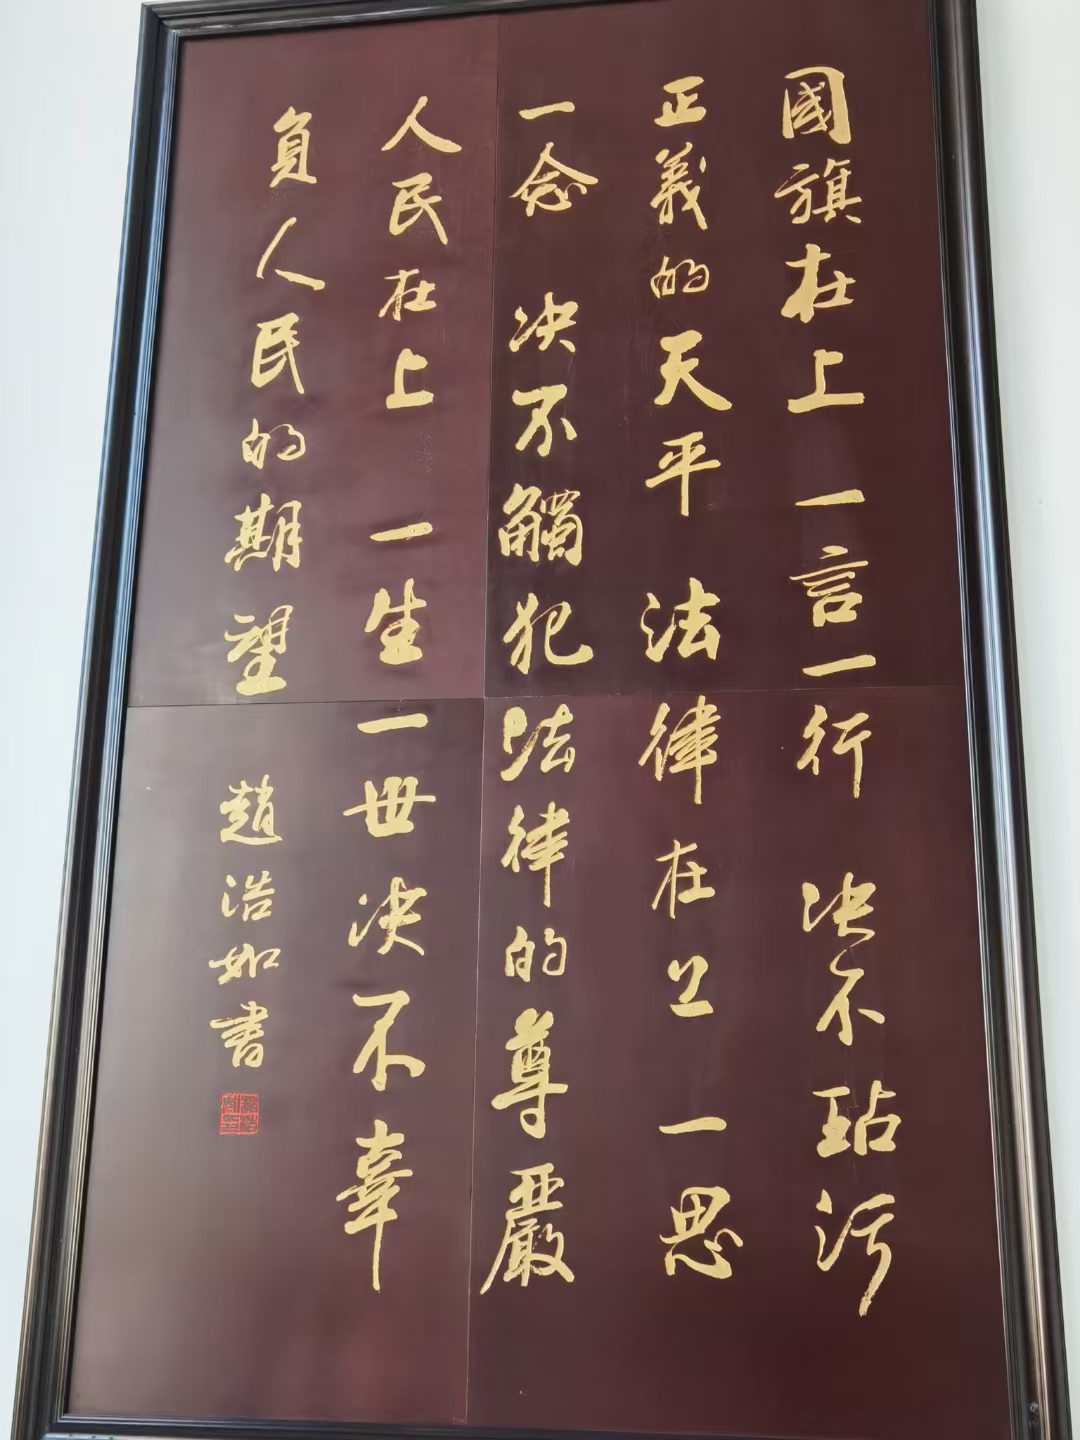 國旗在上 一言一行 决不玷污
正義的天平 法律在上 一思
一念 决不觸犯法律的尊嚴
人民在上 一生一世决不辜
負人民的期望
趙浩如書